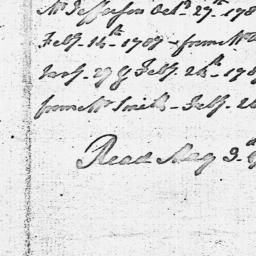 Mr. Jefferson Octr. 27th. 178
Feby. 14th. 1789 - from Mr.
Jany. 29 & Feby. 24th. 178
from Mr. Smith - Feby. 2
Read May 9th.